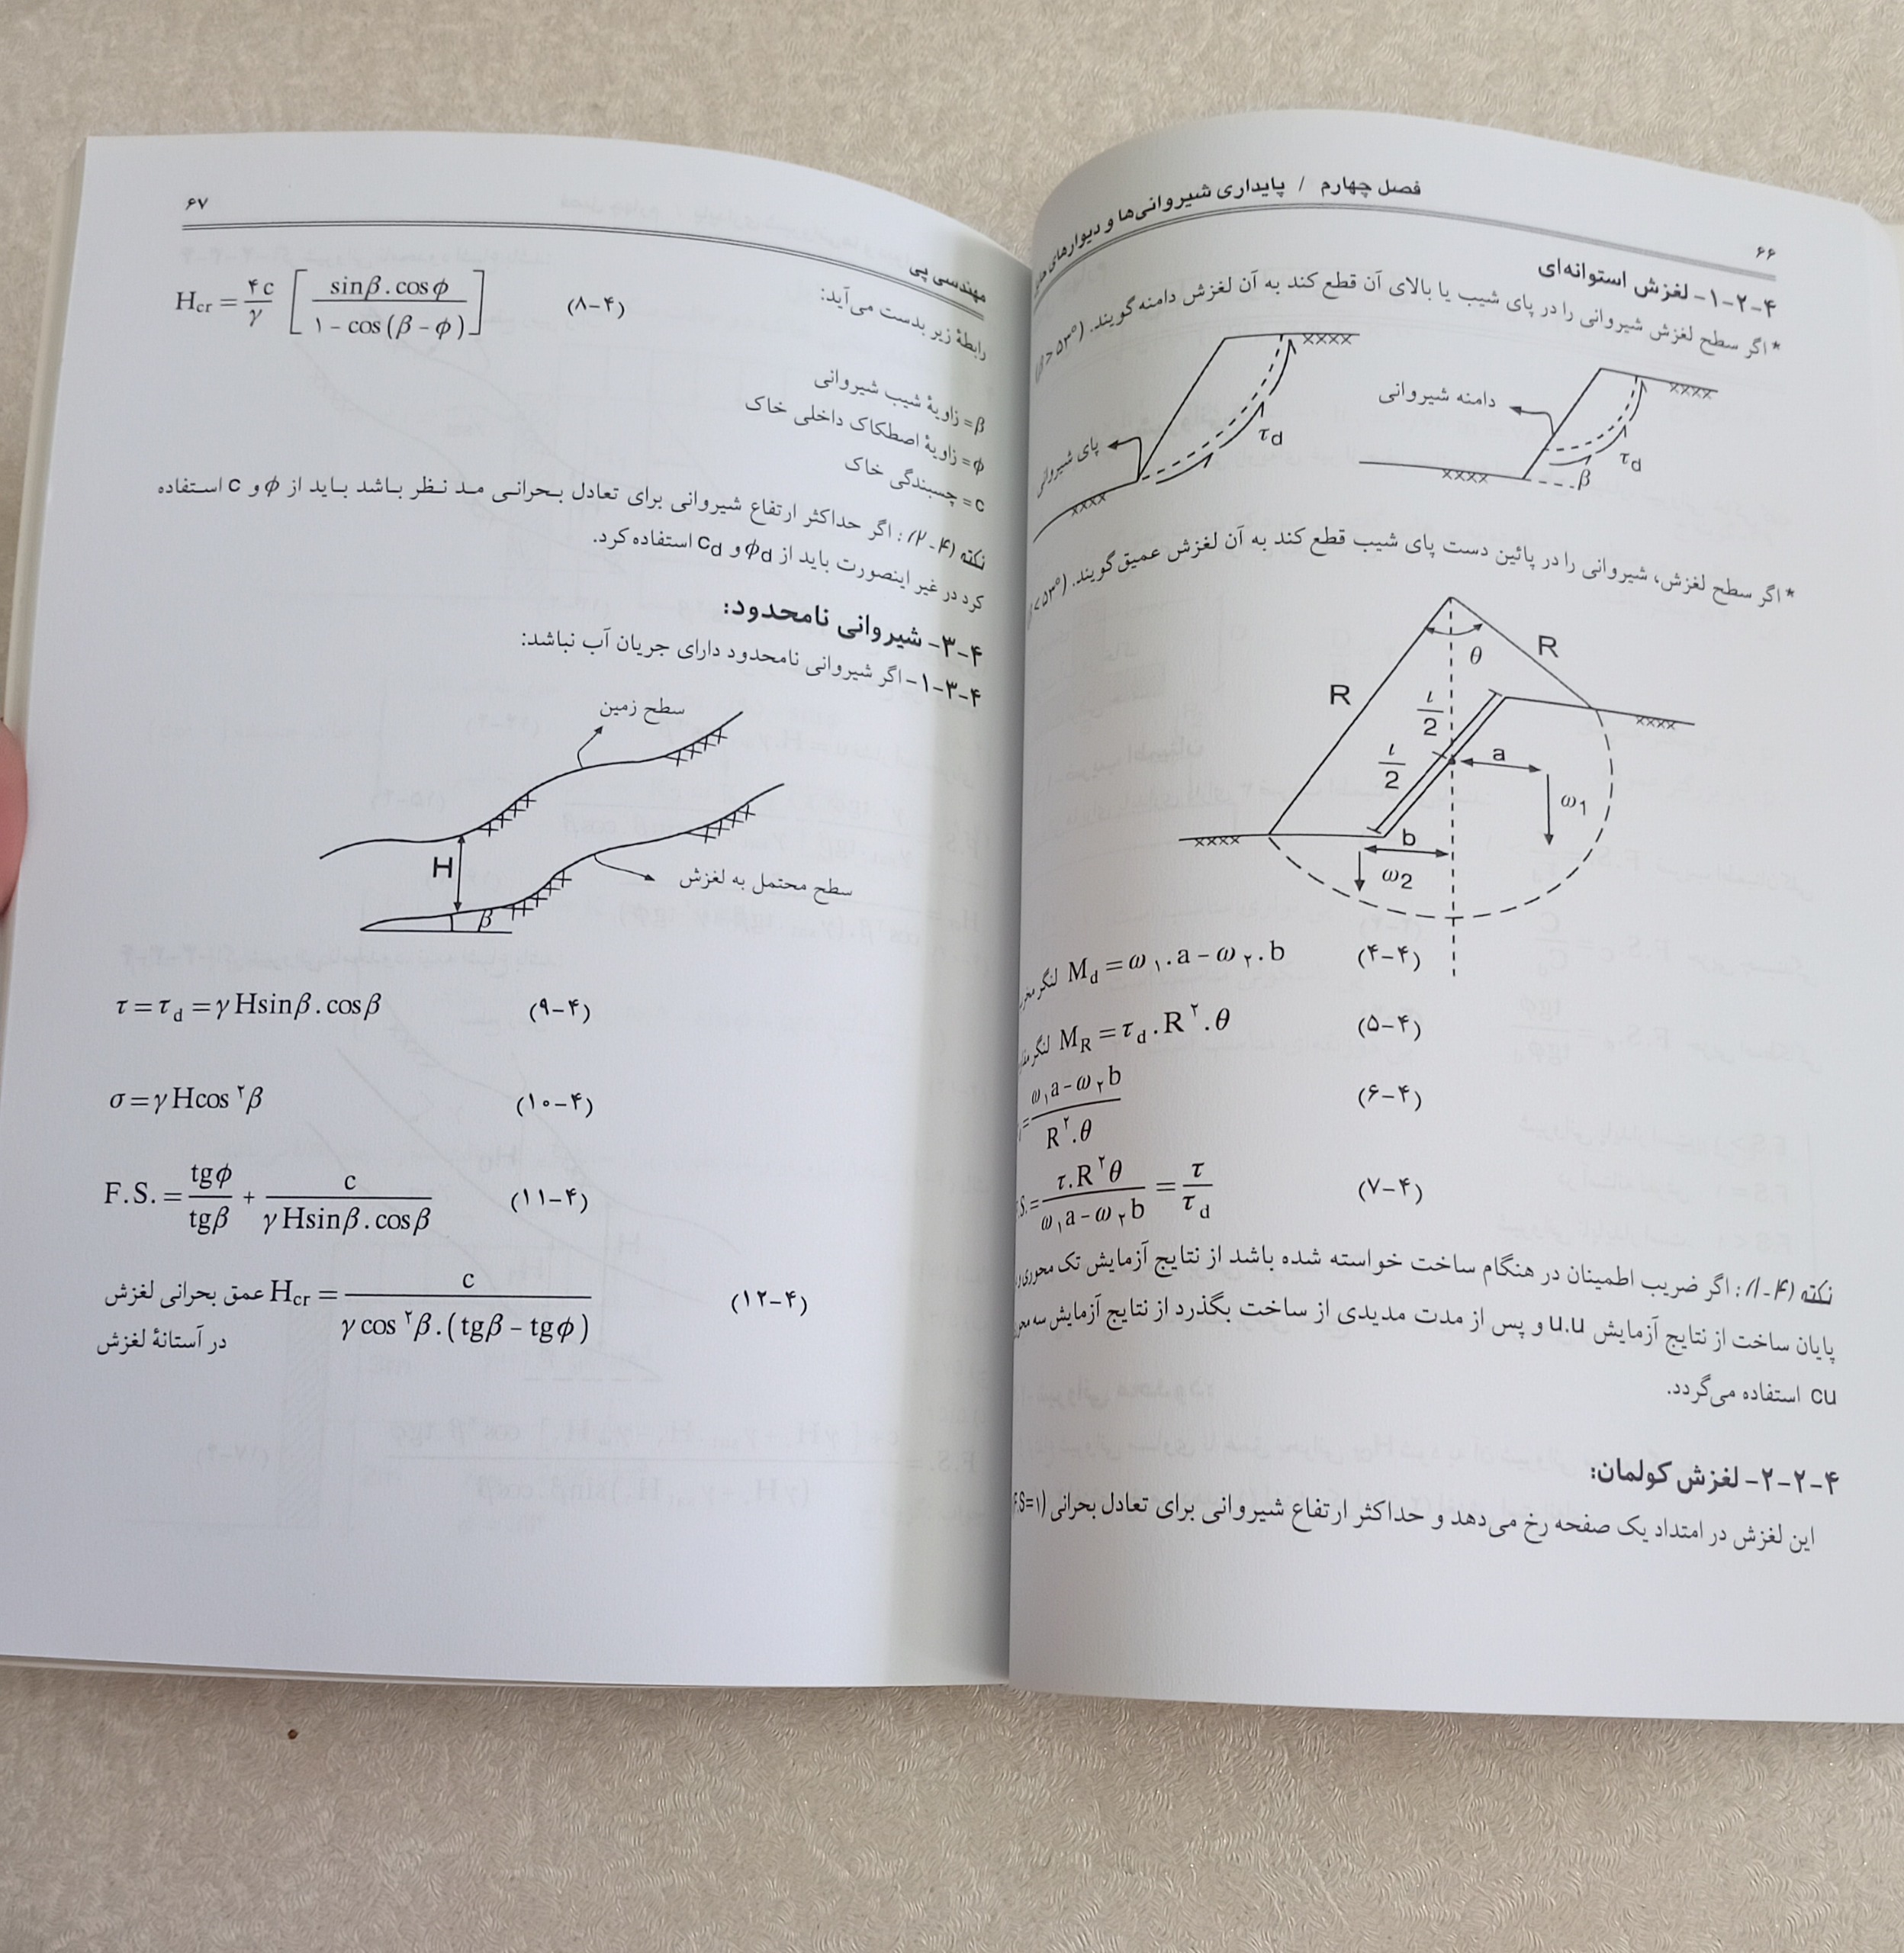 ۶۶
فصل چهارم / پایداری شیروانی‌ها و دیوارهای
۴-۲-۱- لغزش استوانه‌ای
* اگر سطح لغزش شیروانی را در پای شیب یا بالای آن قطع کند به آن لغزش دامنه گویند. (β > ۵۳°)
دامنه شیروانی
پای شیروانی
τd
τd
β
* اگر سطح لغزش، شیروانی را در پائین دست پای شیب قطع کند به آن لغزش عمیق گویند. (< ۵۳°)
θ
R
R
ι/2
ι/2
a
ω1
b
ω2
لنگر Md = ω۱.a − ω۲.b (۴-۴)
لنگر MR = τd.R۲.θ (۴-۵)
= (ω۱a − ω۲b) / (R۲.θ) (۴-۶)
S. = (τ.R۲θ) / (ω۱a − ω۲b) = τ / τd (۴-۷)
نکته (۴-۱): اگر ضریب اطمینان در هنگام ساخت خواسته شده باشد از نتایج آزمایش تک محوری و
پایان ساخت از نتایج آزمایش u.u و پس از مدت مدیدی از ساخت بگذرد از نتایج آزمایش سه
cu استفاده می‌گردد.
۴-۲-۲- لغزش کولمان:
این لغزش در امتداد یک صفحه رخ می‌دهد و حداکثر ارتفاع شیروانی برای تعادل بحرانی (F.S=۱
مهندسی پی
۶۷
رابطهٔ زیر بدست می‌آید:
Hcr = ۴c/γ [ sinβ.cosϕ / ۱ − cos(β − ϕ) ] (۴-۸)
β= زاویهٔ شیب شیروانی
ϕ= زاویهٔ اصطکاک داخلی خاک
c= چسبندگی خاک
نکته (۴-۲): اگر حداکثر ارتفاع شیروانی برای تعادل بحرانی مد نظر باشد باید از ϕ و c استفاده
کرد در غیر اینصورت باید از ϕd و cd استفاده کرد.
۴-۳- شیروانی نامحدود:
۴-۳-۱- اگر شیروانی نامحدود دارای جریان آب نباشد:
سطح زمین
H
سطح محتمل به لغزش
β
τ = τd = γ Hsinβ.cosβ (۴-۹)
σ = γ Hcos۲β (۴-۱۰)
F.S. = tgϕ/tgβ + c/(γ Hsinβ.cosβ) (۴-۱۱)
عمق بحرانی لغزش Hcr = c / (γ cos۲β.(tgβ − tgϕ)) (۴-۱۲)
در آستانهٔ لغزش